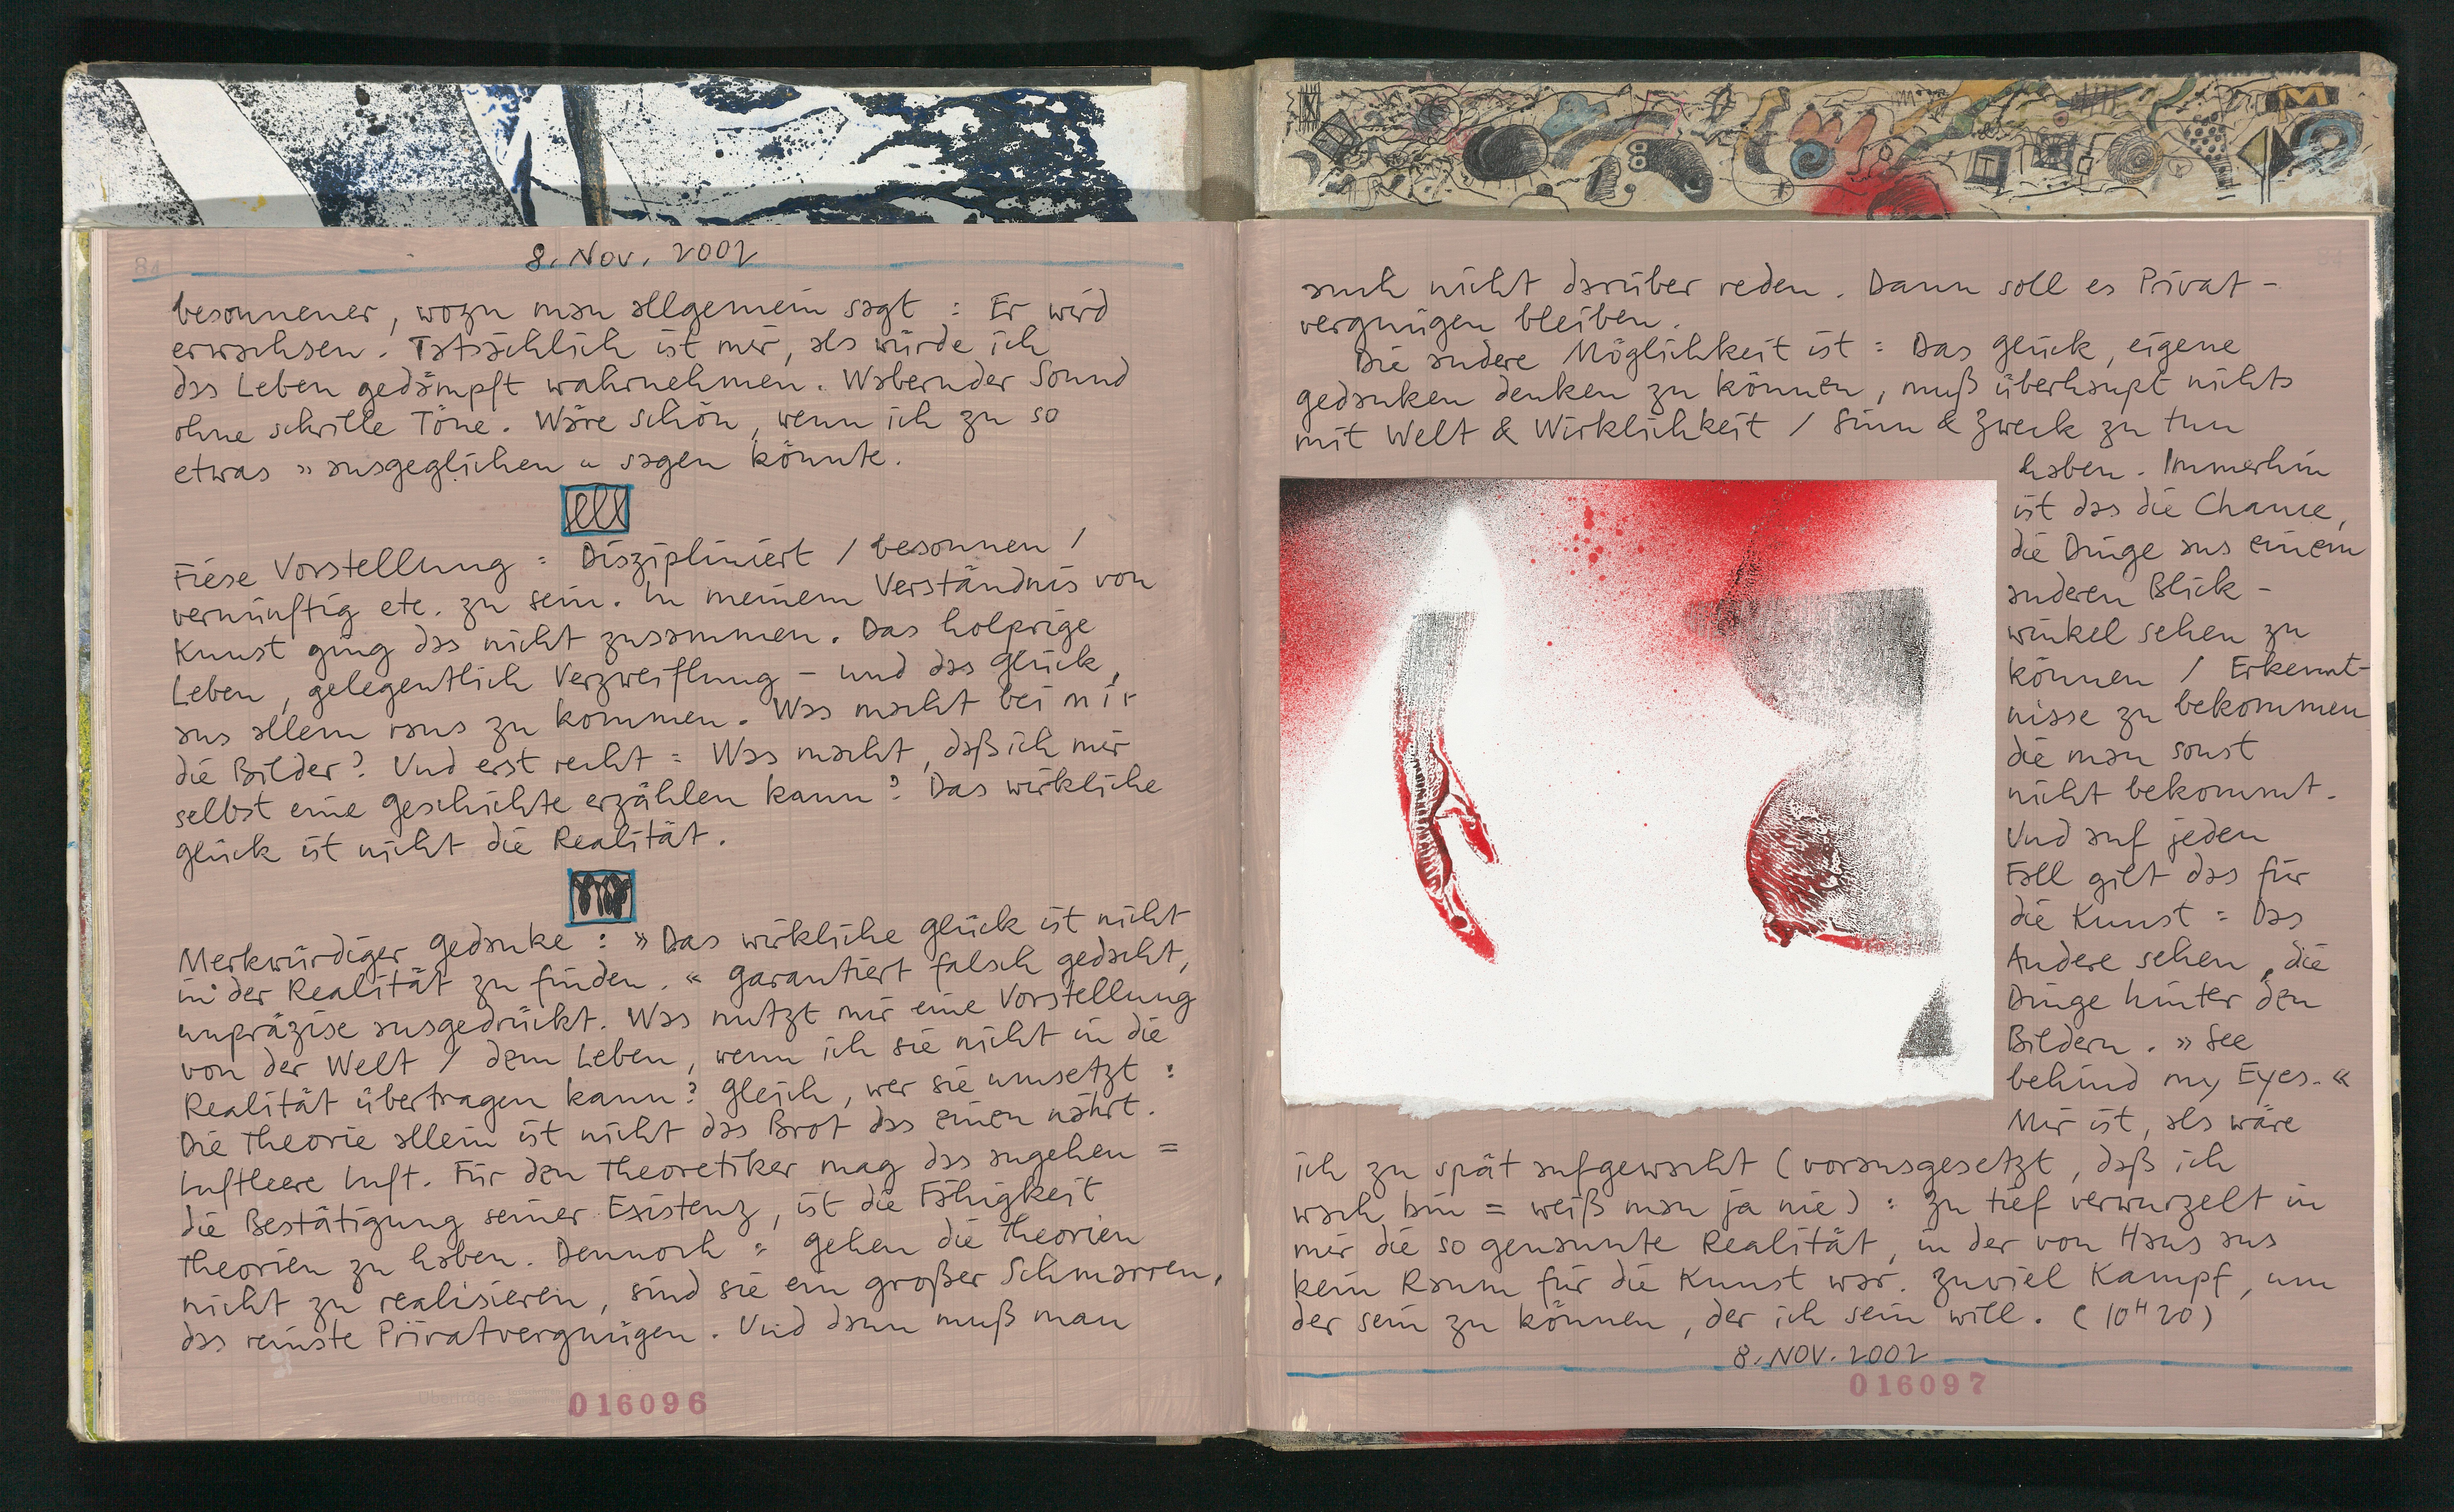 8. Nov. 2002
besonnener, wozu man allgemein sagt : Er wird
erwachsen. Tatsächlich ist mir, als würde ich
das Leben gedämpft wahrnehmen. Wabernder Sound
ohne schrille Töne. Wäre schön, wenn ich zu so
etwas »ausgeglichen« sagen könnte.
Fiese Vorstellung : Diszipliniert / besonnen /
vernünftig etc. zu sein. In meinem Verständnis von
Kunst ging das nicht zusammen. Das holprige
Leben, gelegentlich Verzweiflung – und das Glück,
aus allem raus zu kommen. Was macht bei mir
die Bilder? Und erst recht : Was macht, daß ich mir
selbst eine Geschichte erzählen kann? Das wirkliche
Glück ist nicht die Realität.
Merkwürdiger Gedanke : »Das wirkliche Glück ist nicht
in der Realität zu finden.« Garantiert falsch gedacht,
unpräzise ausgedrückt. Was nutzt mir eine Vorstellung
von der Welt / dem Leben, wenn ich sie nicht in die
Realität übertragen kann? Gleich, wer sie umsetzt :
Die Theorie allein ist nicht das Brot das einen nährt.
Luftleere Luft. Für den Theoretiker mag das angehen =
die Bestätigung seiner Existenz, ist die Fähigkeit
Theorien zu haben. Dennoch : Gehen die Theorien
nicht zu realisieren, sind sie ein großer Schmarren,
das reinste Privatvergnügen. Und dann muß man
016096
auch nicht darüber reden. Dann soll es Privat-
vergnügen bleiben.
Die andere Möglichkeit ist : Das Glück, eigene
Gedanken denken zu können, muß überhaupt nichts
mit Welt & Wirklichkeit / Sinn & Zweck zu tun
haben. Immerhin
ist das die Chance,
die Dinge aus einem
anderen Blick-
winkel sehen zu
können / Erkennt-
nisse zu bekommen
die man sonst
nicht bekommt.
Und auf jeden
Fall gilt das für
die Kunst : Das
Andere sehen, die
Dinge hinter den
Bildern. »See
behind my Eyes.«
Mir ist, als wäre
ich zu spät aufgewacht (vorausgesetzt, daß ich
wach bin = weiß man ja nie) : Zu tief verwurzelt in
mir die so genannte Realität, in der von Haus aus
kein Raum für die Kunst war. Zuviel Kampf, um
der sein zu können, der ich sein will. (10H20)
8. NOV. 2002
016097